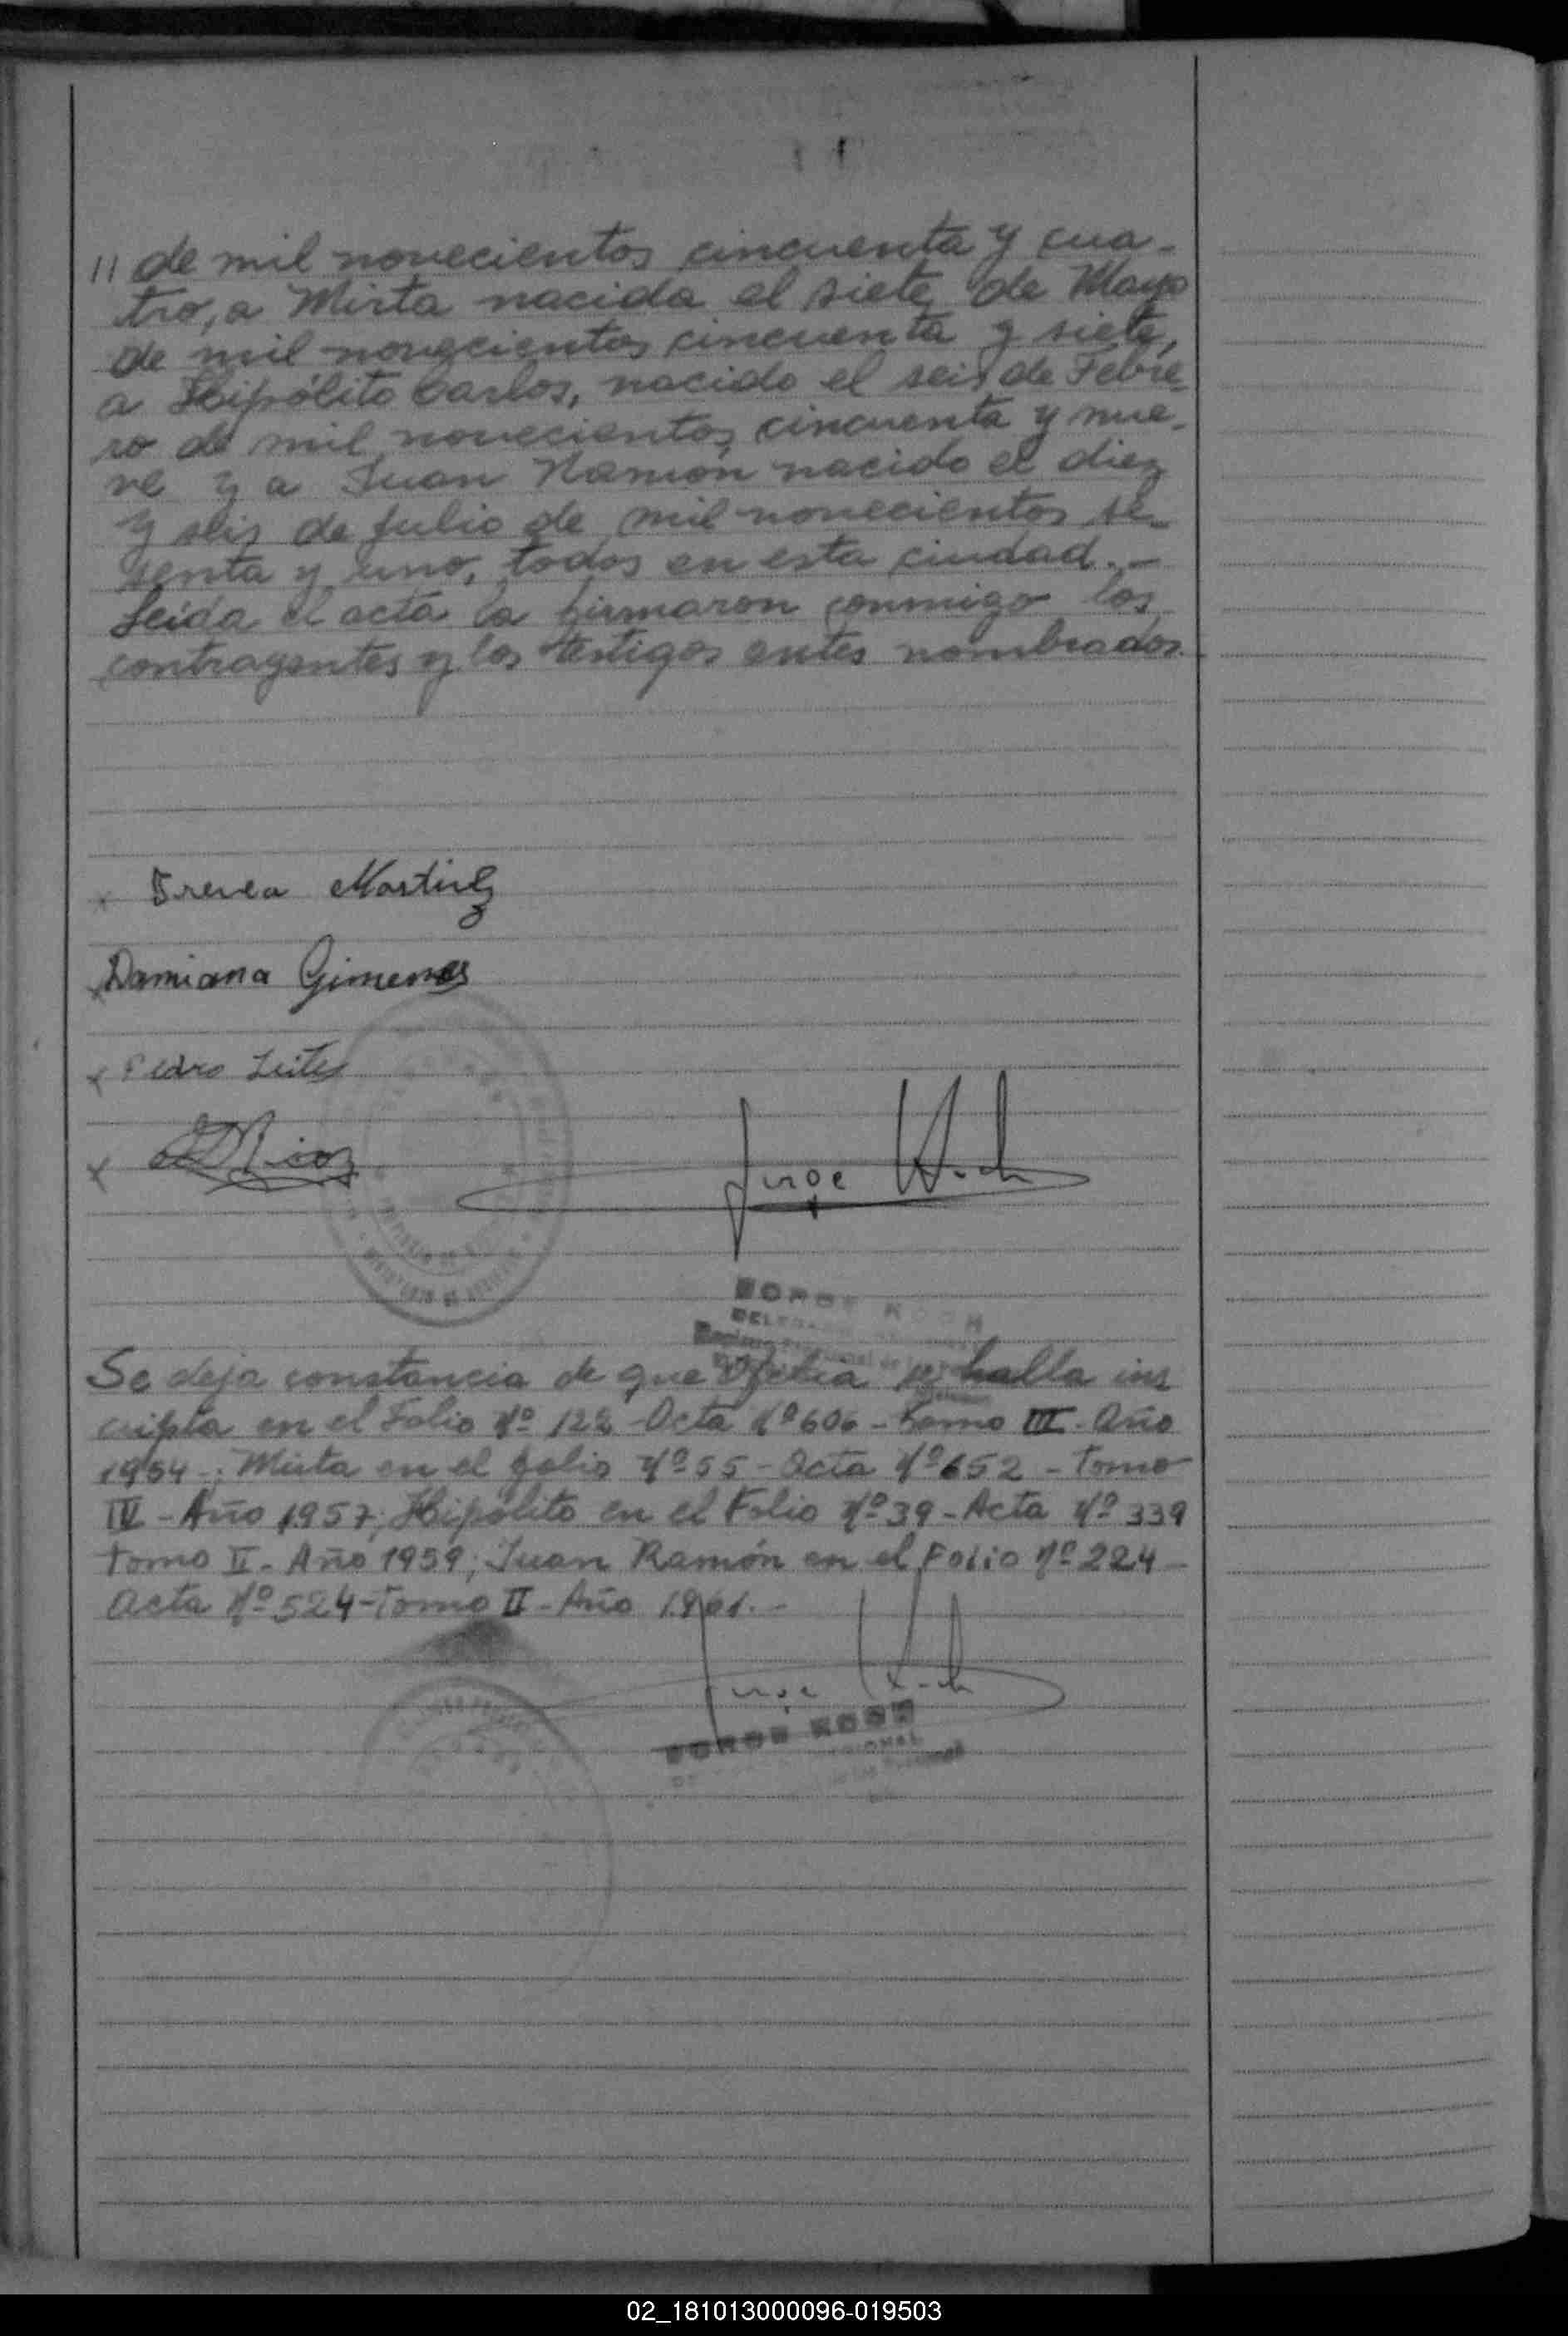 11 de mil novecientos cincuenta y cua-
tro, a Mirta nacida el siete de Mayo
de mil novecientos cincuenta y siete,
a Hipólito Carlos, nacido el seis de Febre-
ro de mil novecientos cincuenta y nue-
ve y a Juan Ramón nacido el diez
y seis de Julio de mil novecientos se-
senta y uno, todos en esta ciudad.-
Leída el acta la firmaron conmigo los
contrayentes y los testigos antes nombrados.
x Martinez
x Damiana Gimenes
x Pedro Leites
x
Jorge Koch
JORGE KOCH
Se deja constancia de que Ofelia se halla ins
cripta en el Folio Nº 122 - Acta Nº 606 - Tomo III - Año
1954 -; Mirta en el folio Nº 55 - Acta Nº 652 - Tomo
IV - Año 1957; Hipólito en el Folio Nº 39 - Acta Nº 339
Tomo II - Año 1959; Juan Ramón en el Folio Nº 224 -
Acta Nº 524 - Tomo II - Año 1961.-
Jorge Koch
JORGE KOCH
02_181013000096-019503